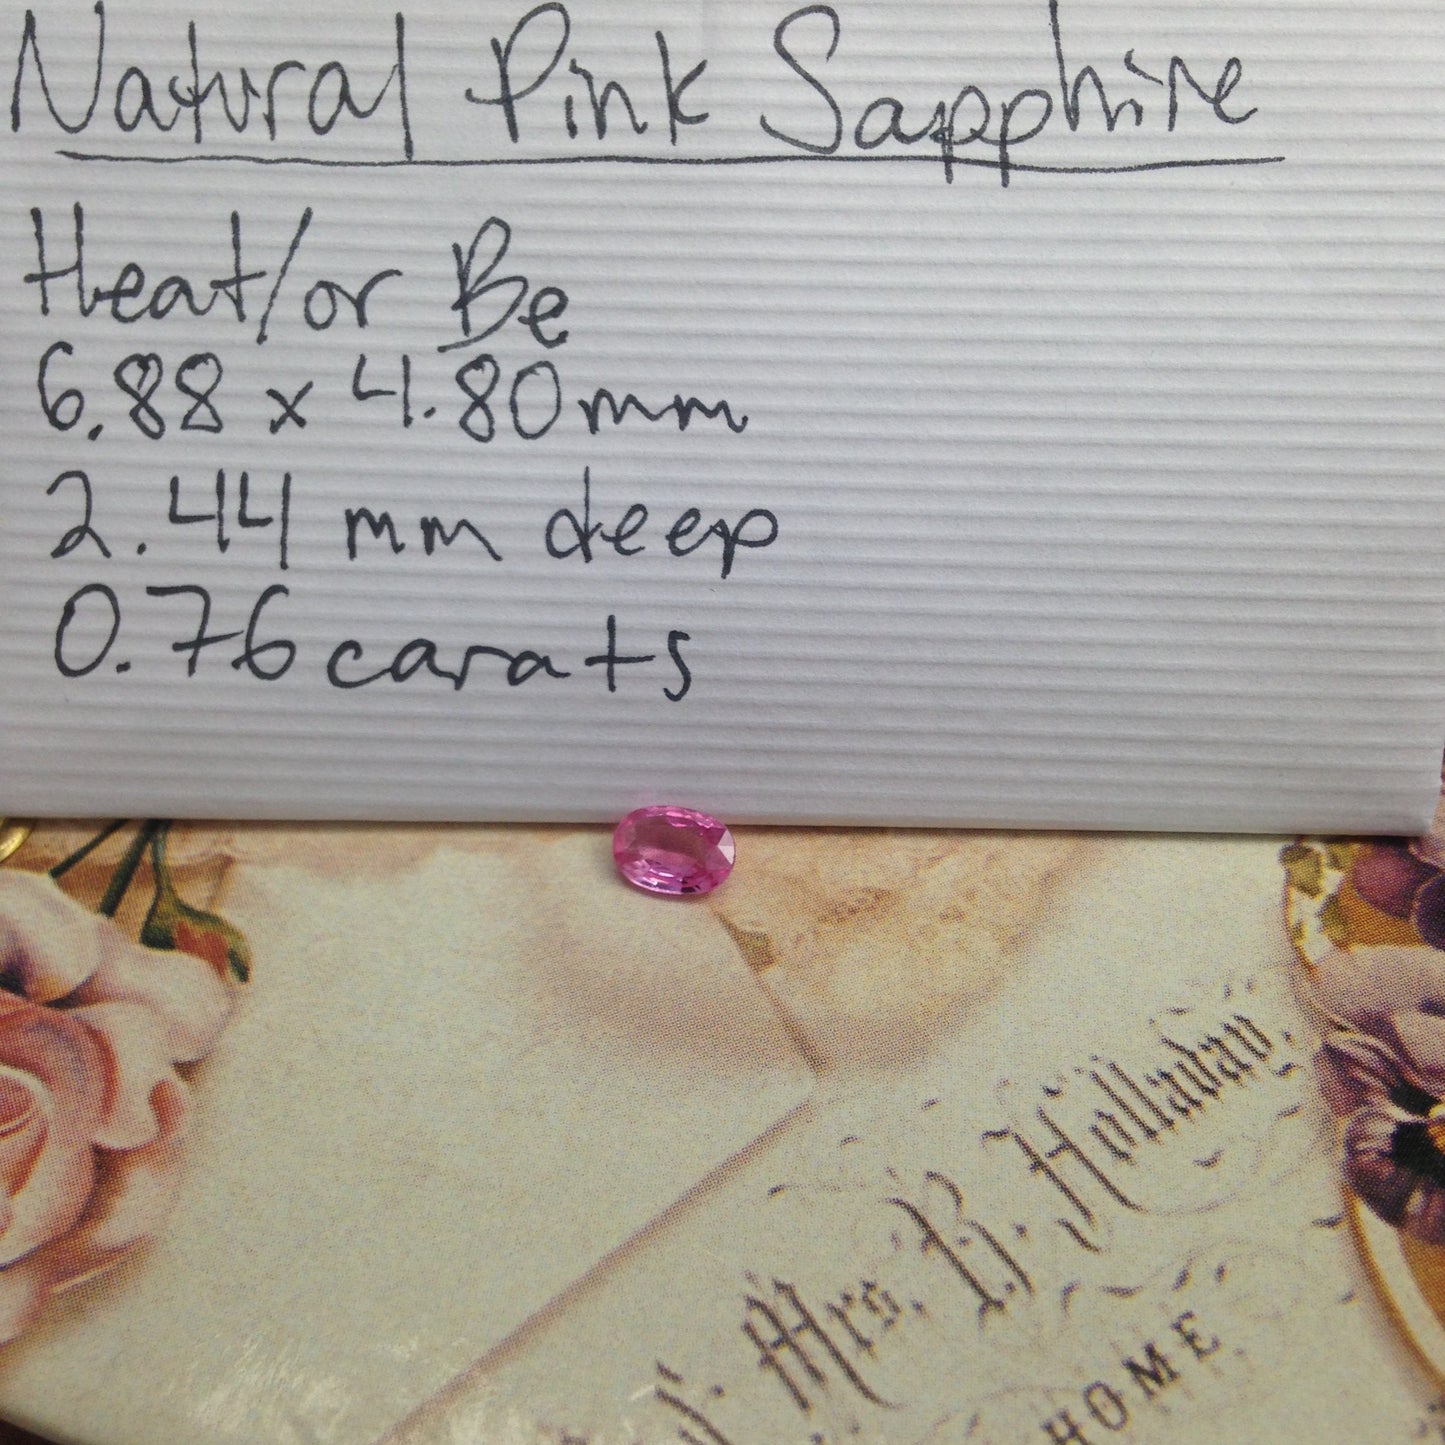 Natural Pink Sapphire
Heat/or Be
6.88 x 4.80mm
2.44 mm deep
0.76 carats
Mrs. B. Holladay,
HOME